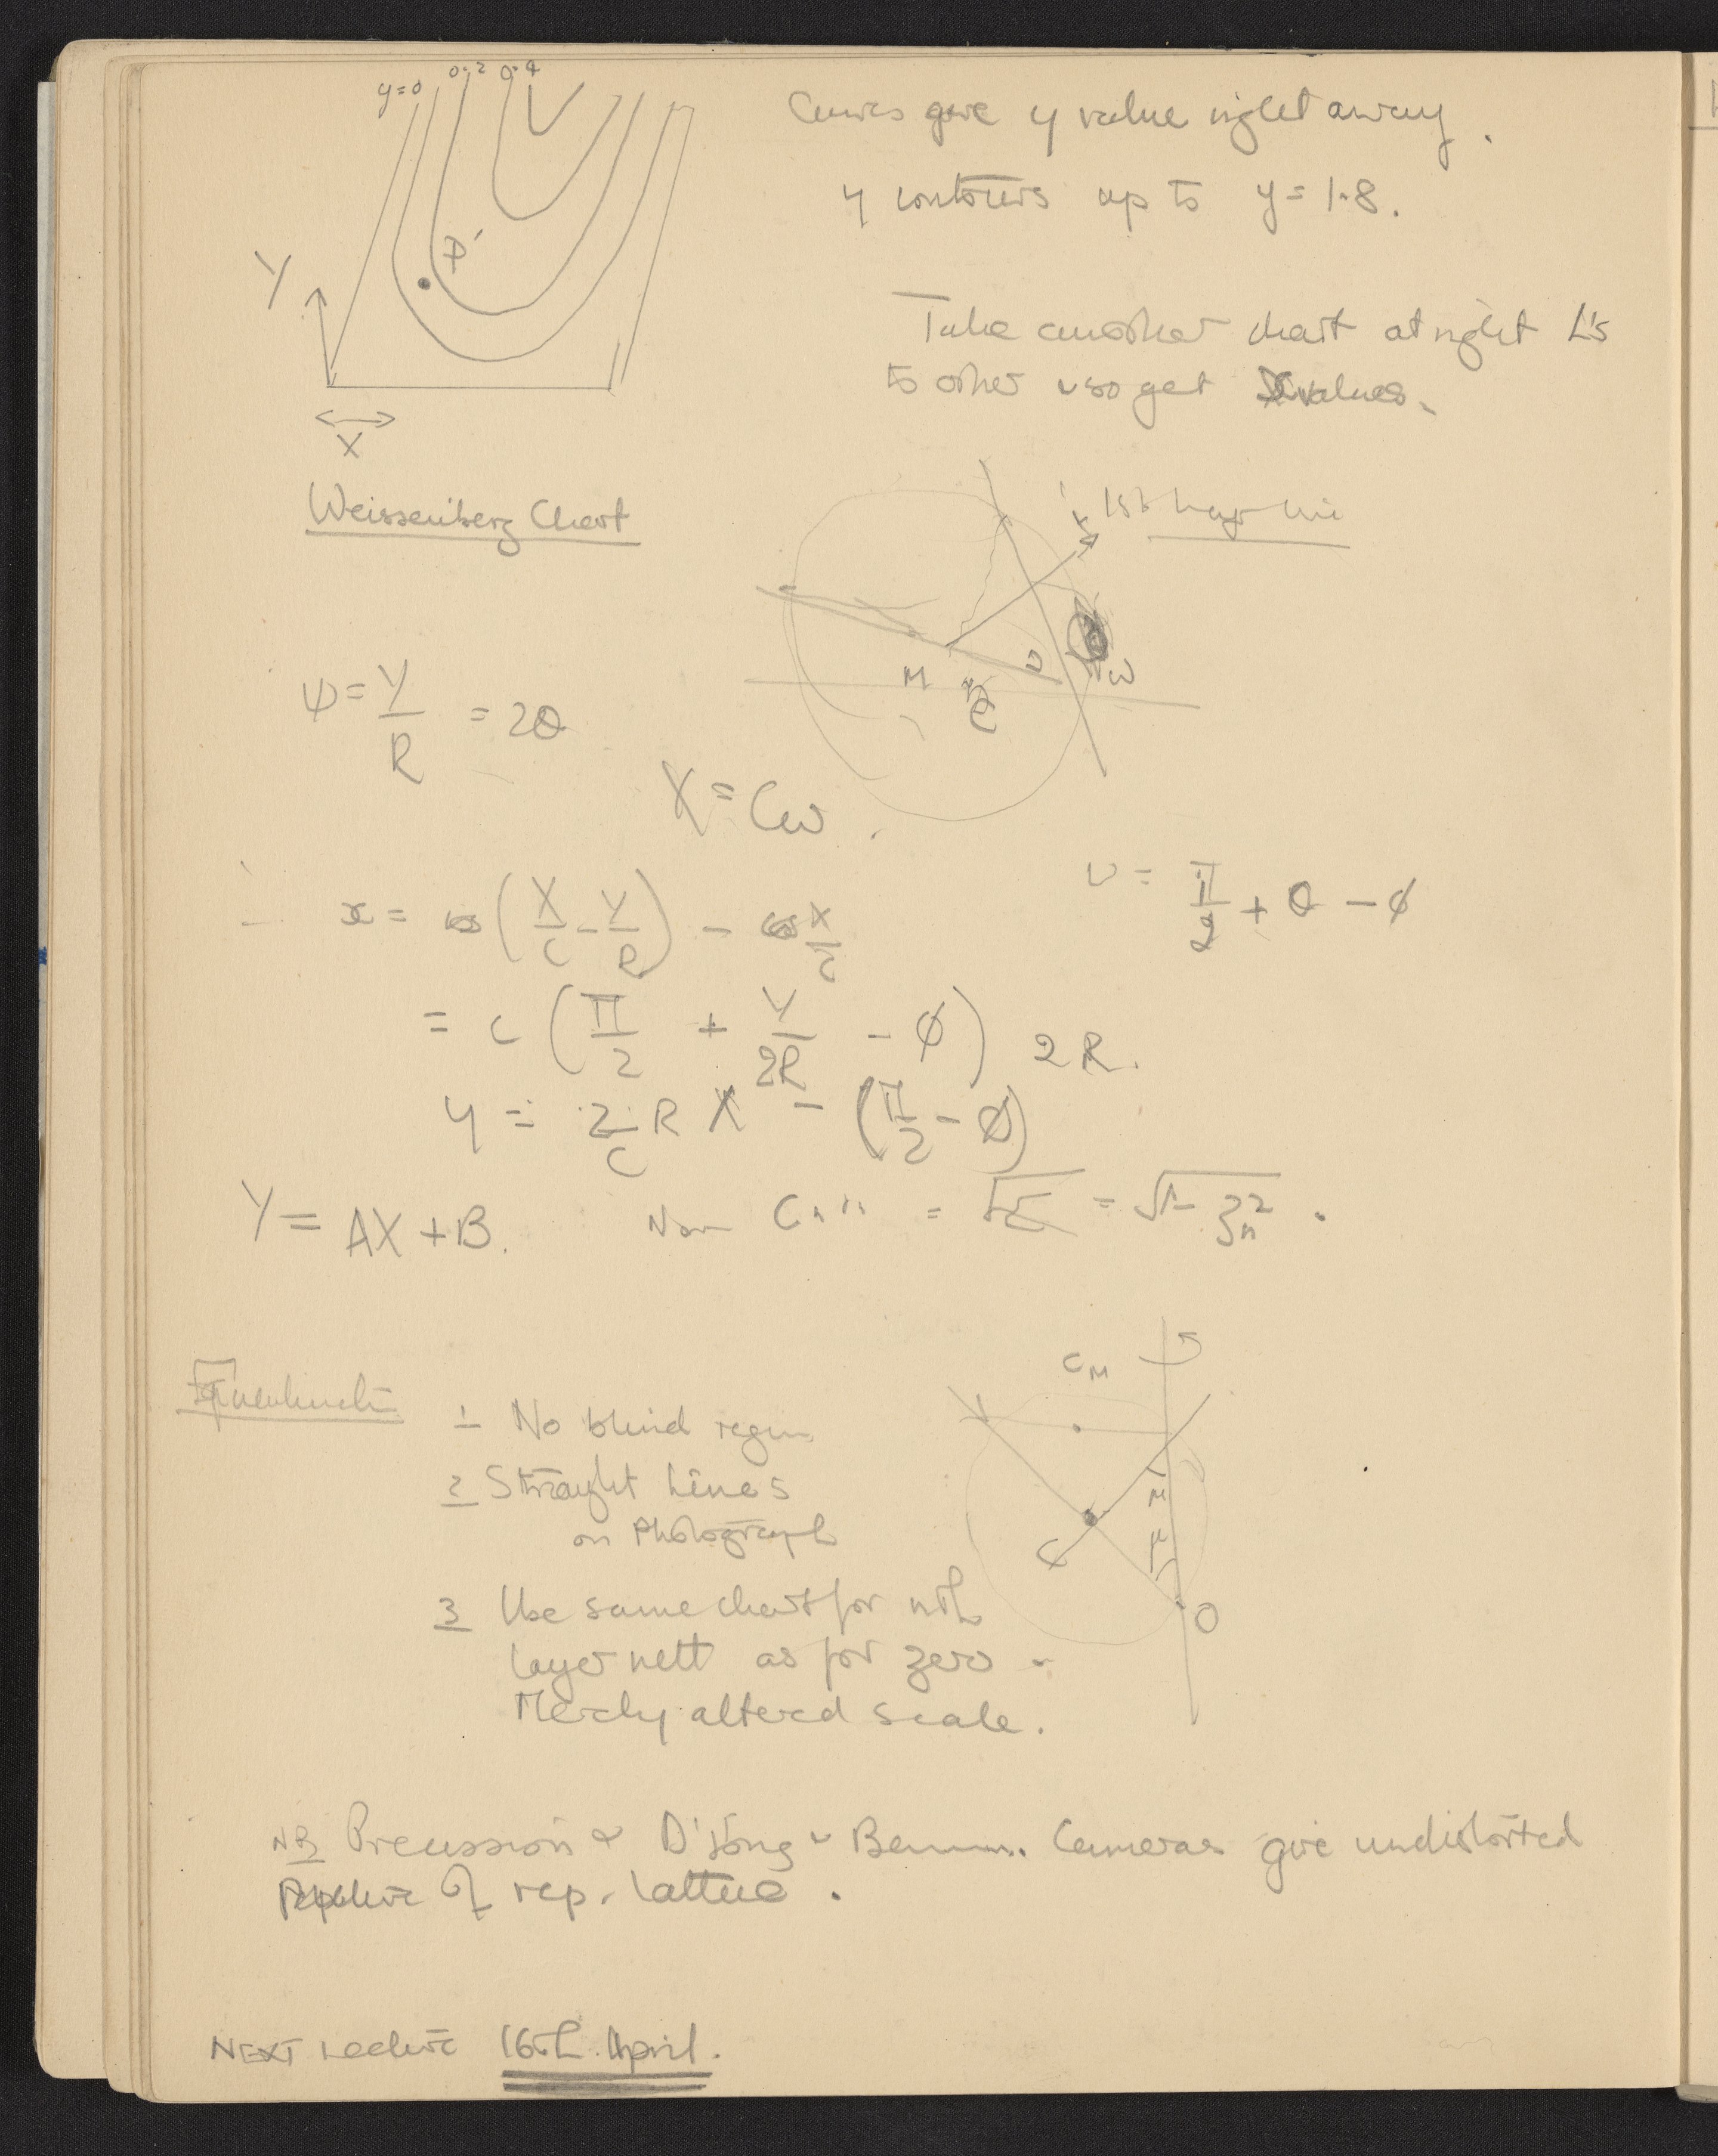 y=0 0.2 0.4
Curves give y value right away.
y contours up to y = 1.8.
P'
Y
X
Take another chart at right L's
to other & so get X values.
Weissenberg Chart
1st
M
ω
ψ = Y/R = 2θ
X = Cω.
υ = π/2 + θ - φ
x = cos (X/C - Y/R) - cos X/C
= C (π/2 + Y/2R - φ) 2R.
y = 2/C R X - (π/2 - φ)
Y = AX + B. Now C = √ = √1 - ζn²
Equiinclin
1 No blind region
2 Straight lines
on Photograph
3 Use same chart for nth
layer nett as for zero -
Merely altered scale.
C M
μ
μ
C
O
NB Precession & D'Jong & Cameras give undistorted
Picture of rep. lattice.
NEXT Lecture 16th. April.